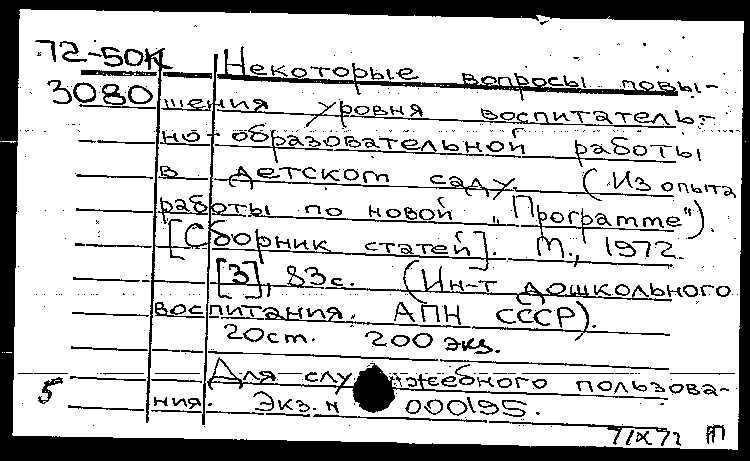 72-50к Некоторые вопросы повы-
3080 шения уровня воспитатель-
но-образовательной работы
в детском саду. (Из опыта
работы по новой „Программе").
[Сборник статей]. М., 1972.
[3], 83с. (Ин-т дошкольного
воспитания. АПН СССР).
20ст. 200 экз.
Для служебного пользова-
5 ния. Экз. N 000195.